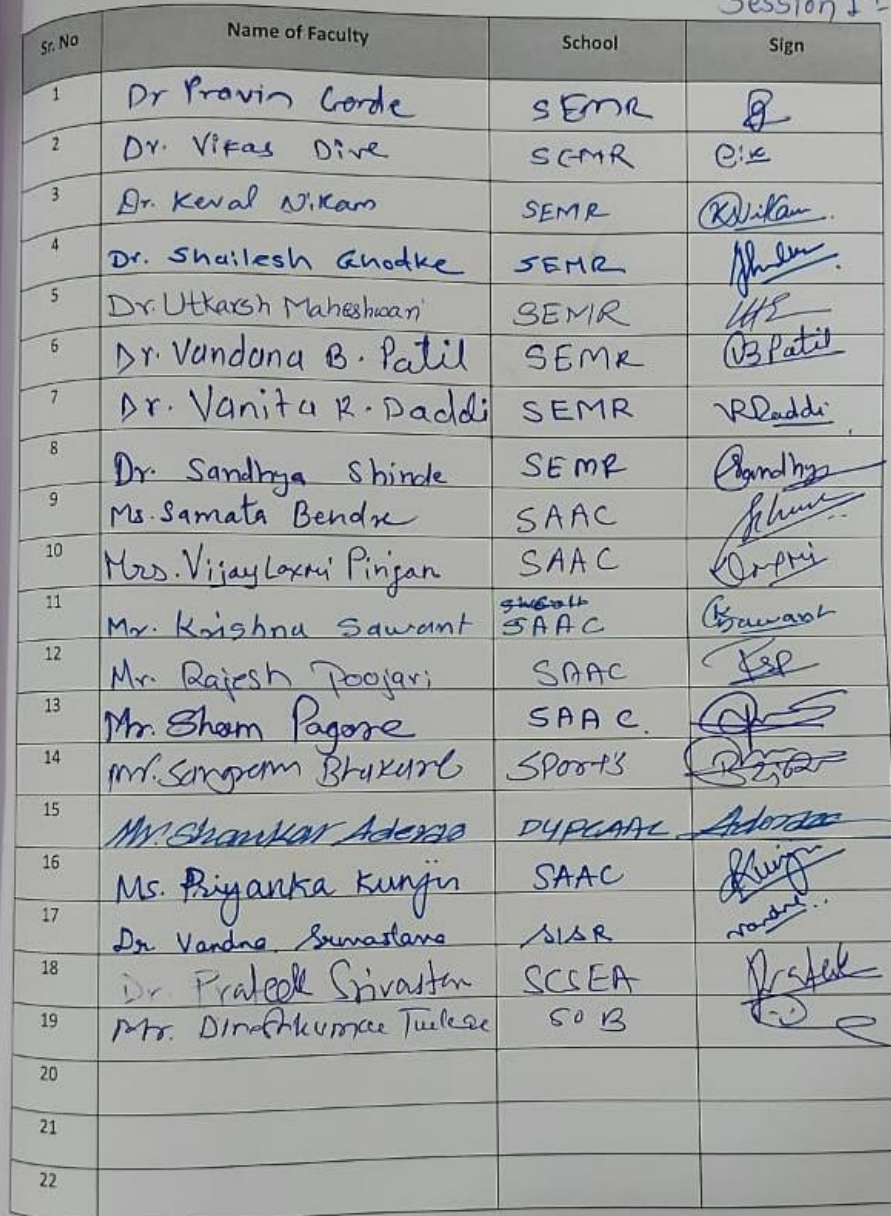 Session 1 :-
Sr. No Name of Faculty School Sign
1 Dr Pravin Gorde SEMR
2 Dr. Vikas Dive SEMR
3 Dr. Keval Nikam SEMR KNikam
4 Dr. Shailesh Ghodke SEMR
5 Dr. Utkarsh Maheshwari SEMR
6 Dr. Vandana B. Patil SEMR VBPatil
7 Dr. Vanita R. Daddi SEMR VRDaddi
8 Dr. Sandhya Shinde SEMR Sandhya
9 Ms. Samata Bendre SAAC
10 Mrs. Vijaylaxmi Pinjan SAAC
11 Mr. Krishna Sawant SAAC KSawant
12 Mr. Rajesh Poojari SAAC
13 Mr. Sham Pagore SAAC.
14 Mr. Sangram Bhakure Sports
15 Mr. Shankar Aderao DYPCAAC Aderao
16 Ms. Priyanka Kunjir SAAC Kunjir
17 Dr Vandna Srivastava SISR
18 Dr. Prateek Srivastav SCSEA Prateek
19 Mr. Dineshkumar SOB
20
21
22